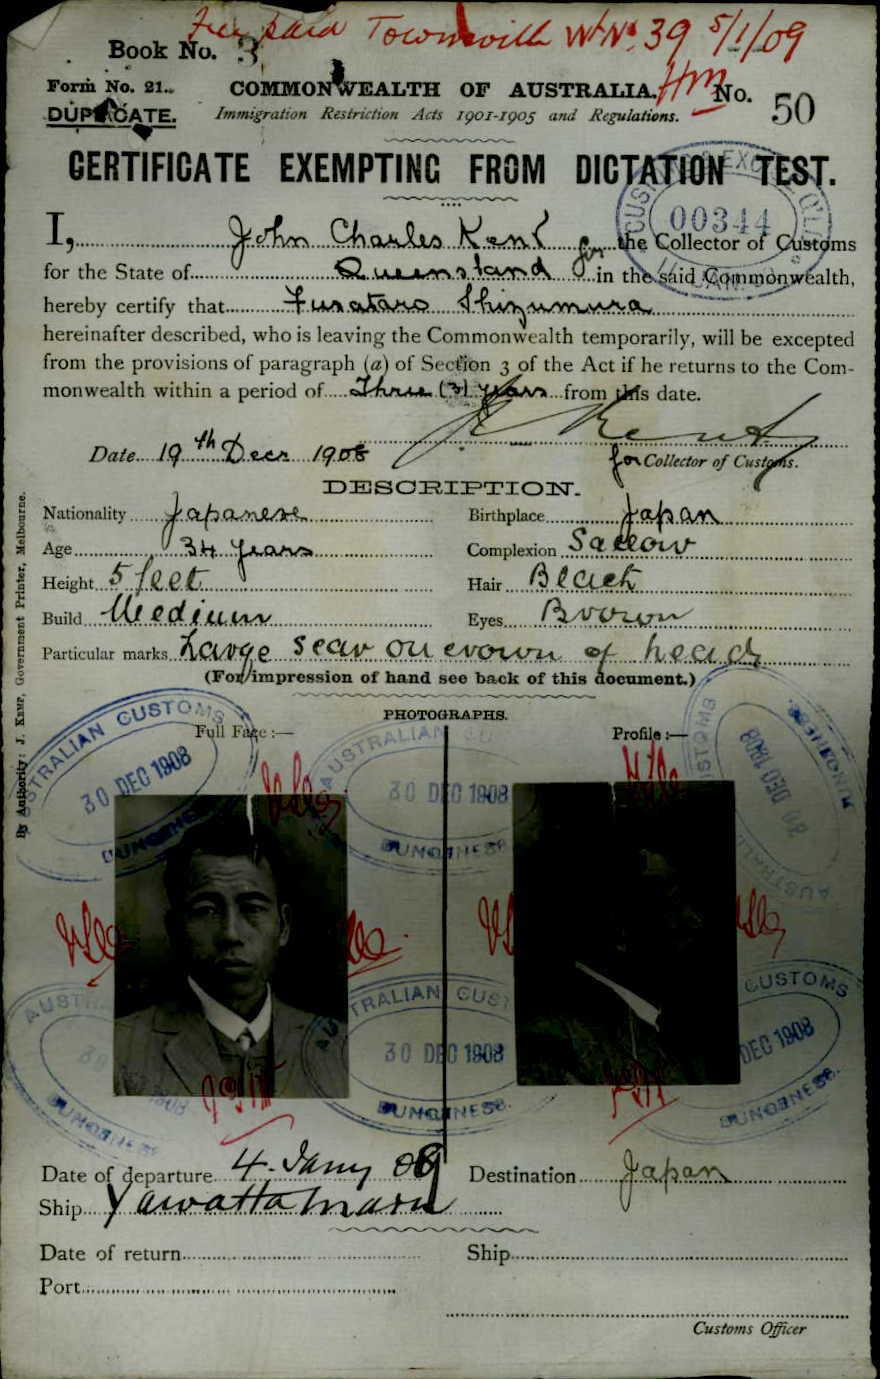 Fee paid Townsville Wt No. 39 5/1/09
Book No. 3
HM
Form No. 21.
COMMONWEALTH OF AUSTRALIA.
No. 50
DUPLICATE.
Immigration Restriction Acts 1901-1905 and Regulations.
CERTIFICATE EXEMPTING FROM DICTATION TEST.
00344
I, John Charles Kent for the Collector of Customs
for the State of Queensland in the said Commonwealth,
hereby certify that Fusataro Shizumura
hereinafter described, who is leaving the Commonwealth temporarily, will be excepted
from the provisions of paragraph (a) of Section 3 of the Act if he returns to the Com-
monwealth within a period of Three (3) years from this date.
Date 19th Decr 1908
J C Kent
for Collector of Customs.
DESCRIPTION.
Nationality Japanese
Birthplace Japan
Age 34 years
Complexion Sallow
Height 5 feet
Hair Black
Build Medium
Eyes Brown
Particular marks Large scar on crown of head
(For impression of hand see back of this document.)
PHOTOGRAPHS.
Full Face :—
Profile :—
AUSTRALIAN CUSTOMS
30 DEC 1908
DUNGENESS
AUSTRALIAN CU
30 DEC 1908
DUNGENESS.
CUSTOMS
30 DEC 1908
DUNGENESS
AUSTRALIA
AUSTR
30 1908
DUNGENESS
AUSTRALIAN CUST
30 DEC 1908
DUNGENESS.
CUSTOMS
DEC 1908
DUNGENESS.
Date of departure 4. Jany 09
Destination Japan
Ship Yawatta Maru
Date of return
Ship
Port
Customs Officer
By Authority: J. Kemp, Government Printer, Melbourne.